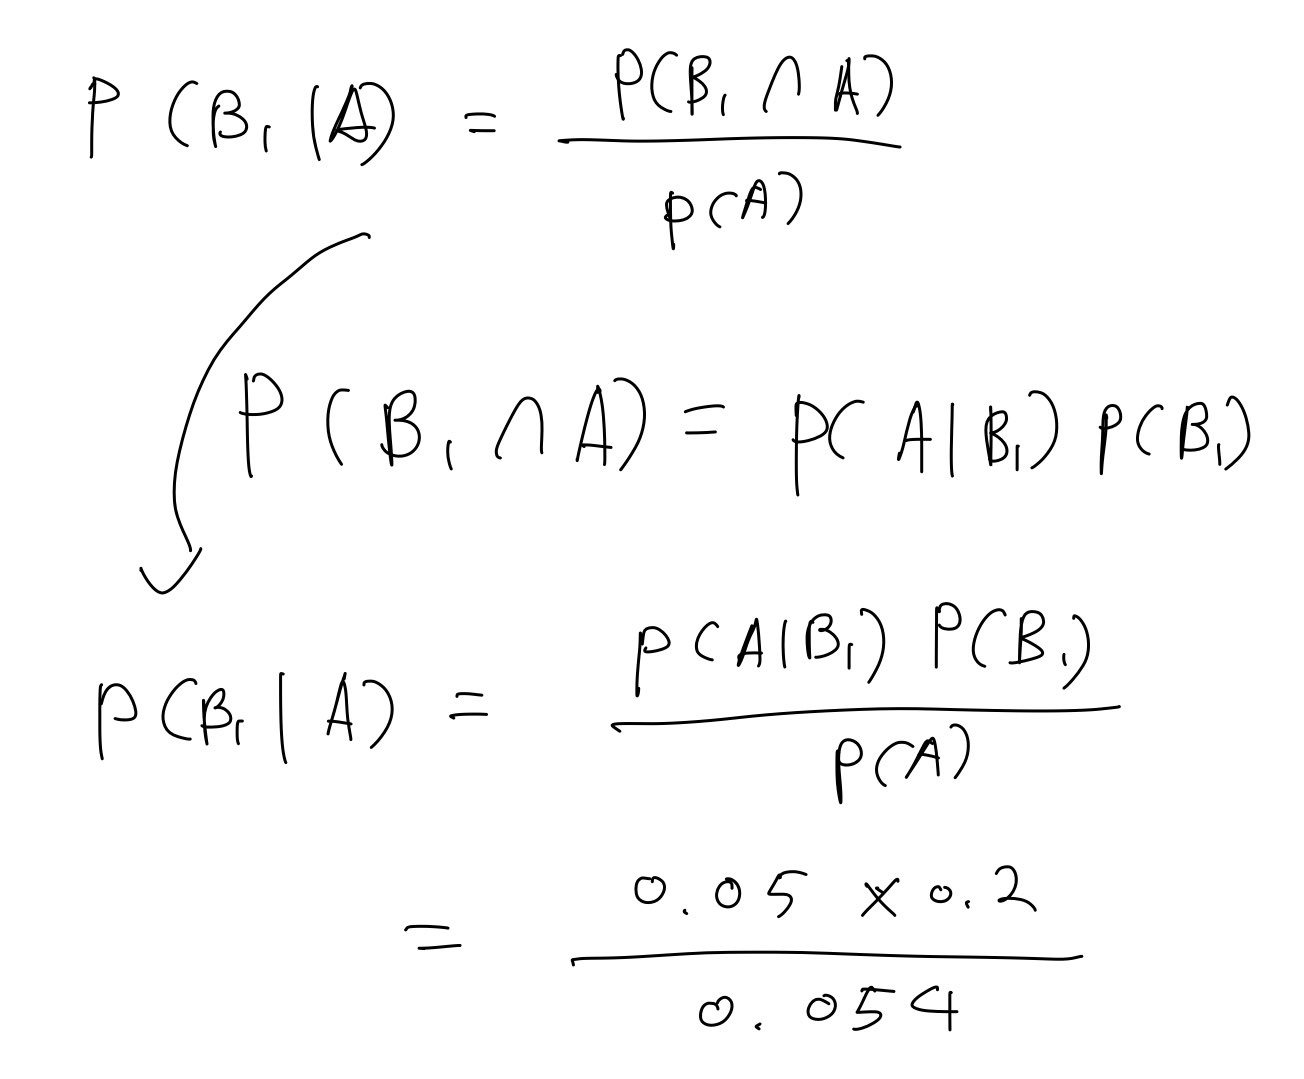 P(B₁|A) = P(B₁ ∩ A) / P(A)
P(B₁ ∩ A) = P(A|B₁) P(B₁)
P(B₁|A) = P(A|B₁) P(B₁) / P(A)
= 0.05 × 0.2 / 0.054